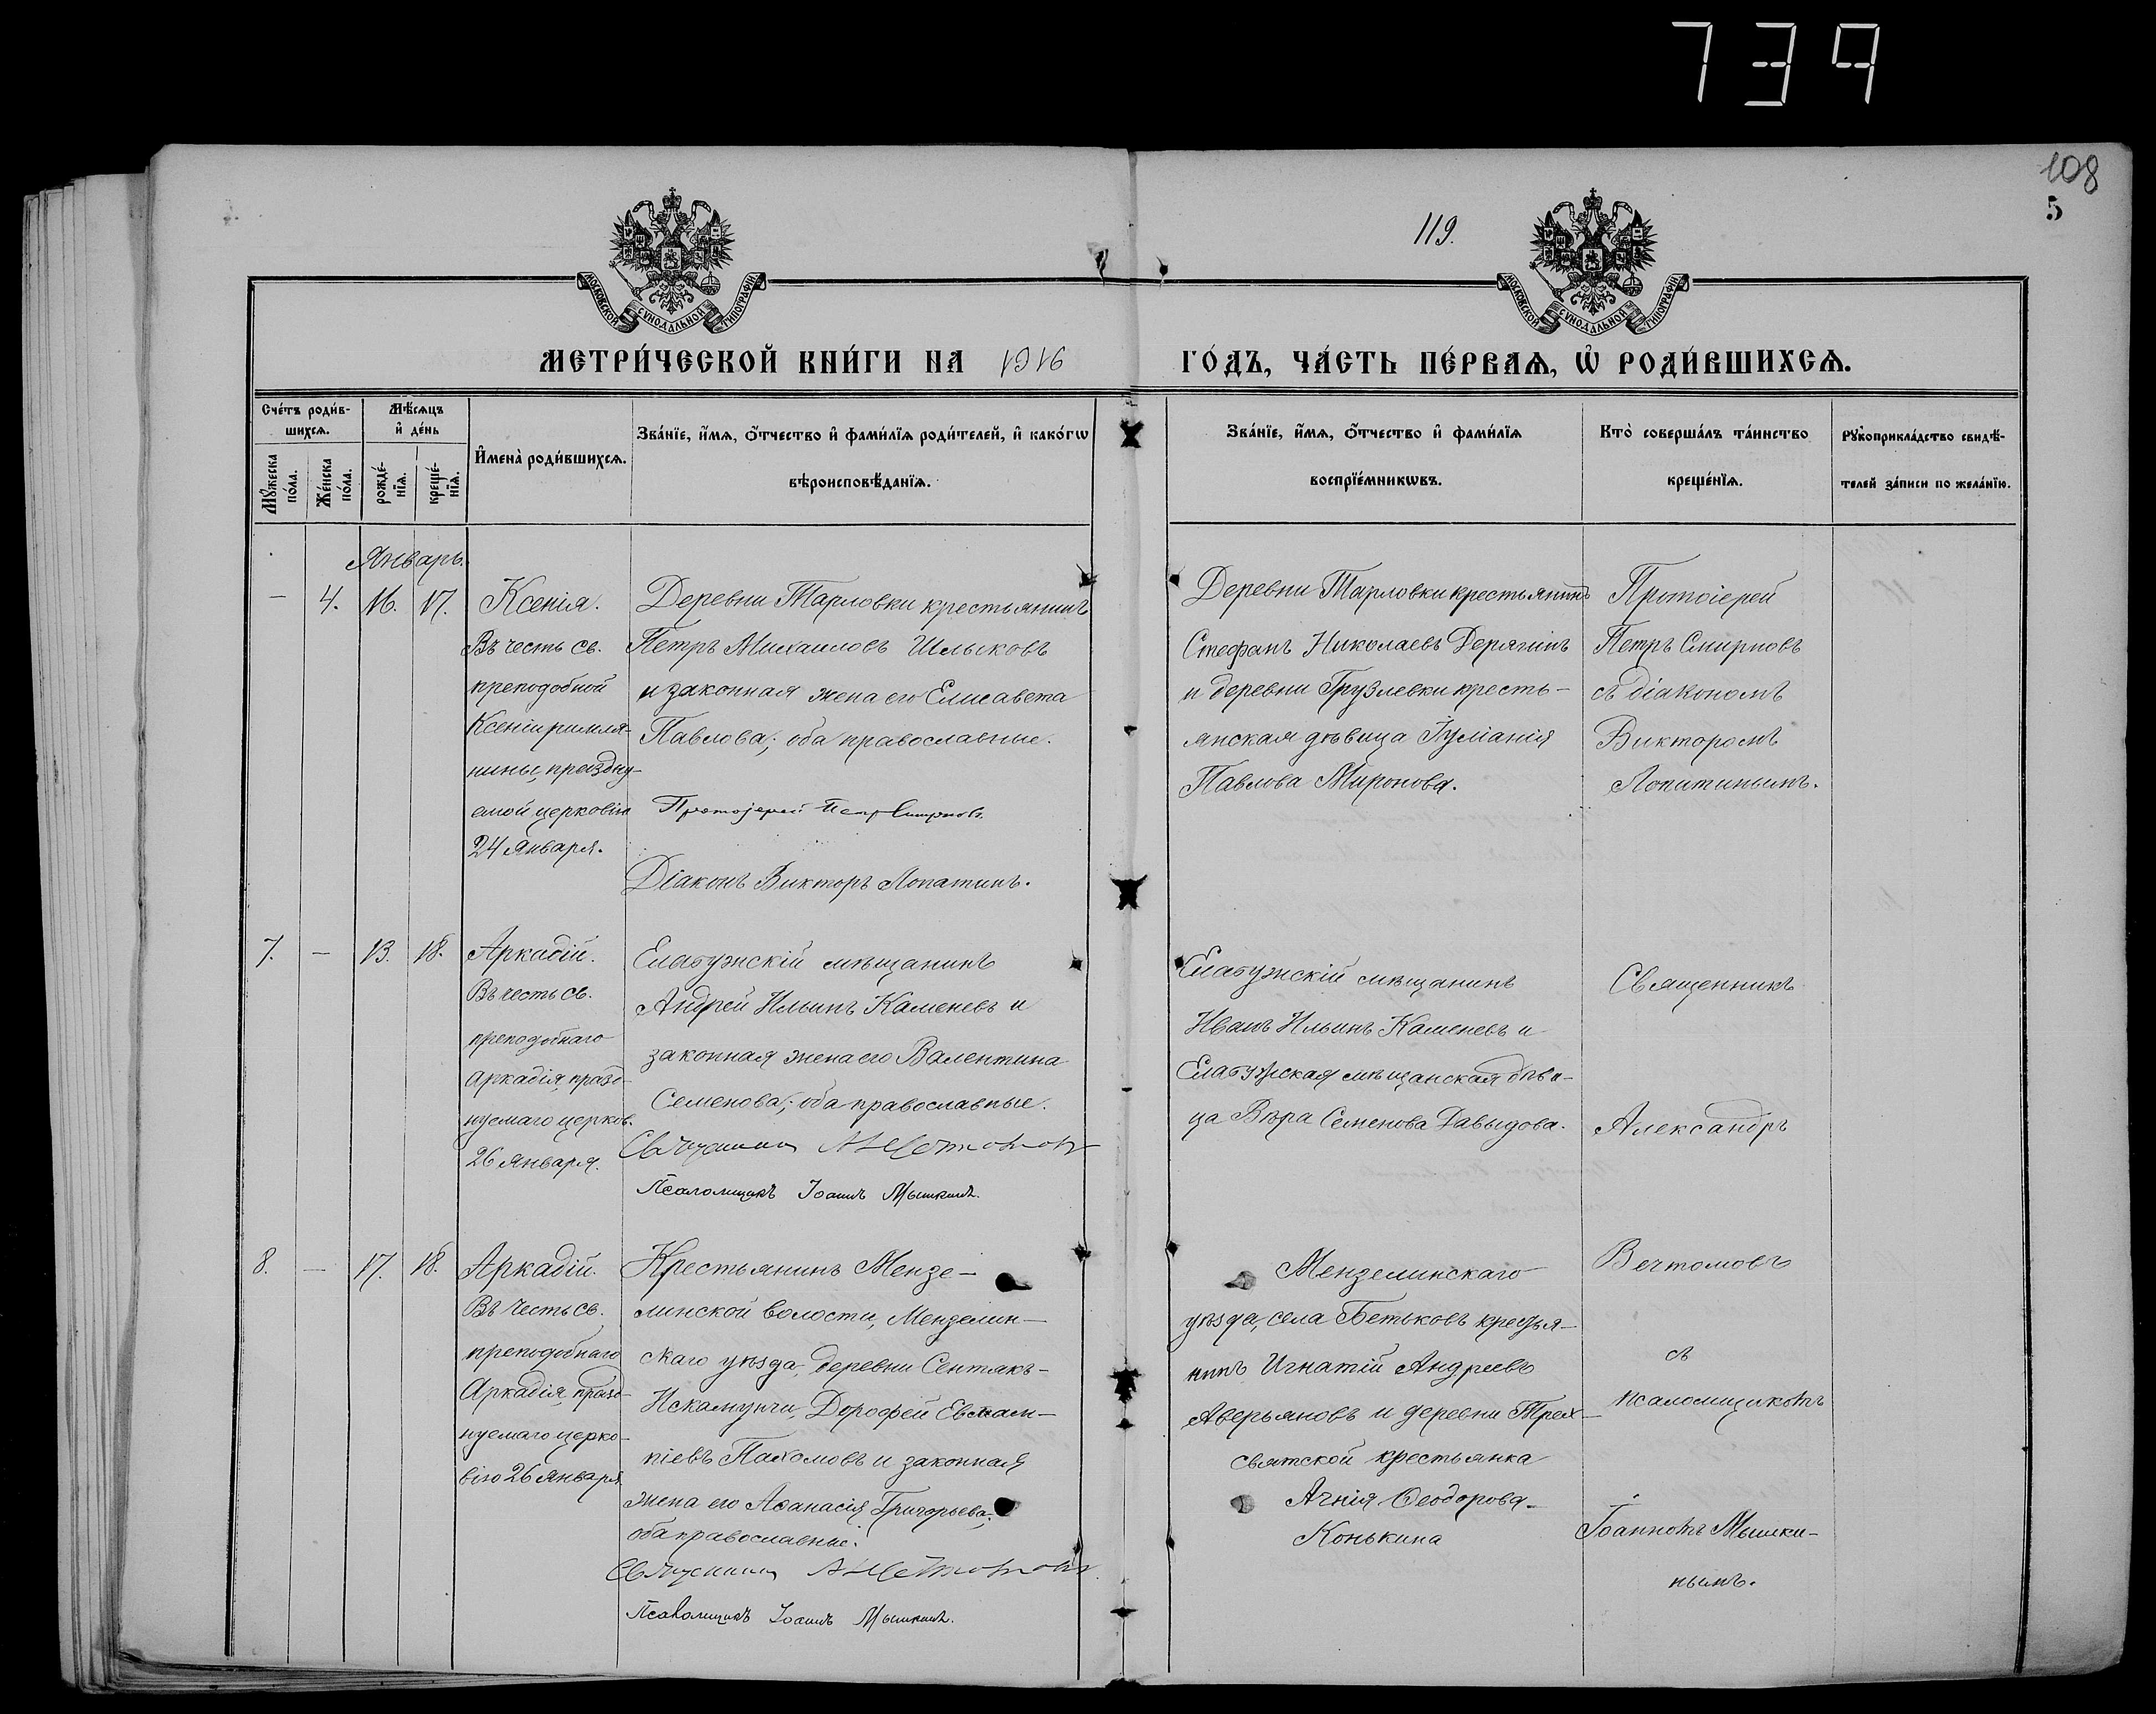 739
108
5
119.
МОСКОВСКОЙ СѴНОДАЛЬНОЙ ТИПОГРАФІИ
МОСКОВСКОЙ СѴНОДАЛЬНОЙ ТИПОГРАФІИ
МЕТРИ́ЧЕСКОЙ КНИ́ГИ НА 1916 ГО́ДЪ, ЧА́СТЬ ПЕ́РВАѦ, Ѡ҆ РОДИ́ВШИХСѦ.
Сче́тъ роди́в-
шихсѧ.
Мꙋ́жеска по́ла.
Же́нска по́ла.
Мѣ́сѧцъ
и҆ де́нь
рожде́-
нїѧ.
креще́-
нїѧ.
И҆мена̀ роди́вшихсѧ.
Зва́нїе, и҆́мѧ, ѻ҆́тчество и҆ фами́лїѧ роди́телей, и҆ како́гѡ
вѣроисповѣ́данїѧ.
Зва́нїе, и҆́мѧ, ѻ҆́тчество и҆ фами́лїѧ
воспрїе́мникѡвъ.
Кто̀ соверша́лъ та́инство
креще́нїѧ.
Рꙋкоприкла́дство свидѣ́-
телей за́писи по жела́нїю.
Январь.
— 4. 16. 17.
Ксенія.
Въ честь св.
преподобной
Ксеніи римля-
нины, праздну-
емой церковію
24 января.
Деревни Тарловки крестьянинъ
Петръ Михаиловъ Шлыковъ
и законная жена его Елисавета
Павлова; оба православные.
Протоіерей Петръ Смирновъ.
Діаконъ Викторъ Лопатинъ.
Деревни Тарловки крестьянинъ
Стефанъ Николаевъ Дерягинъ
и деревни Грузлевки кресть-
янская дѣвица Іуліанія
Павлова Миронова.
Протоіерей
Петръ Смирновъ
съ діакономъ
Викторомъ
Лопатинымъ.
7. — 13. 18.
Аркадій.
Въ честь св.
преподобнаго
Аркадія, празд-
нуемаго церков.
26 января.
Елабужскій мѣщанинъ
Андрей Ильинъ Каменевъ и
законная жена его Валентина
Семенова; оба православные.
Священникъ А Вечтомовъ
Псаломщикъ Іоаннъ Мышкинъ.
Елабужскій мѣщанинъ
Иванъ Ильинъ Каменевъ и
Елабужская мѣщанская дѣви-
ца Вѣра Семенова Давыдова.
Священникъ
Александръ
8. — 17. 18.
Аркадій.
Въ честь св.
преподобнаго
Аркадія, празд-
нуемаго церко-
вію 26 января
Крестьянинъ Мензе-
линской волости, Мензелин-
скаго уѣзда, деревни Сентякъ-
Искамунчи, Дорофей Евлам-
піевъ Пахомовъ и законная
жена его Аѳанасія Григорьева;
оба православные.
Священникъ А Вечтомовъ.
Псаломщикъ Іоаннъ Мышкинъ.
Мензелинскаго
уѣзда, села Бетьковъ крестья-
нинъ Игнатій Андреевъ
Аверьяновъ и деревни Трех-
святской крестьянка
Агнія Ѳеодорова
Конькина
Вечтомовъ
съ
псаломщикомъ
Іоанномъ Мышки-
нымъ.